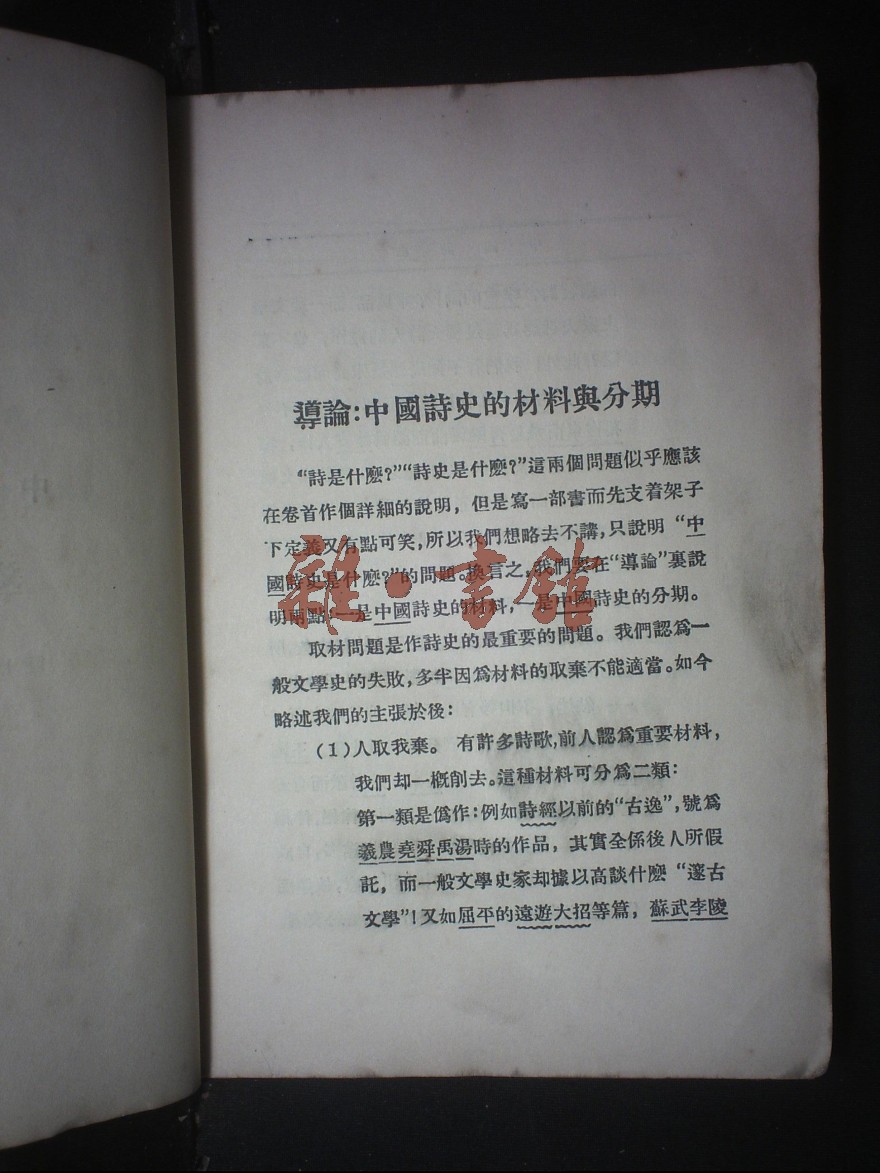 導論:中國詩史的材料與分期
“詩是什麽?”“詩史是什麽?”這兩個問題似乎應該
在卷首作個詳細的說明，但是寫一部書而先支着架子
下定義又有點可笑,所以我們想略去不講,只說明“中
國詩史是什麽?”的問題。換言之,我們要在“導論”裏說
明兩點:一是中國詩史的材料,一是中國詩史的分期。
取材問題是作詩史的最重要的問題。我們認爲一
般文學史的失敗,多半因爲材料的取棄不能適當。如今
略述我們的主張於後:
(1)人取我棄。 有許多詩歌,前人認爲重要材料,
我們却一概削去。這種材料可分爲二類:
第一類是僞作:例如詩經以前的“古逸”,號爲
羲農堯舜禹湯時的作品，其實全係後人所假
託，而一般文學史家却據以高談什麽“邃古
文學”!又如屈平的遠遊大招等篇，蘇武李陵
雜·書館
中